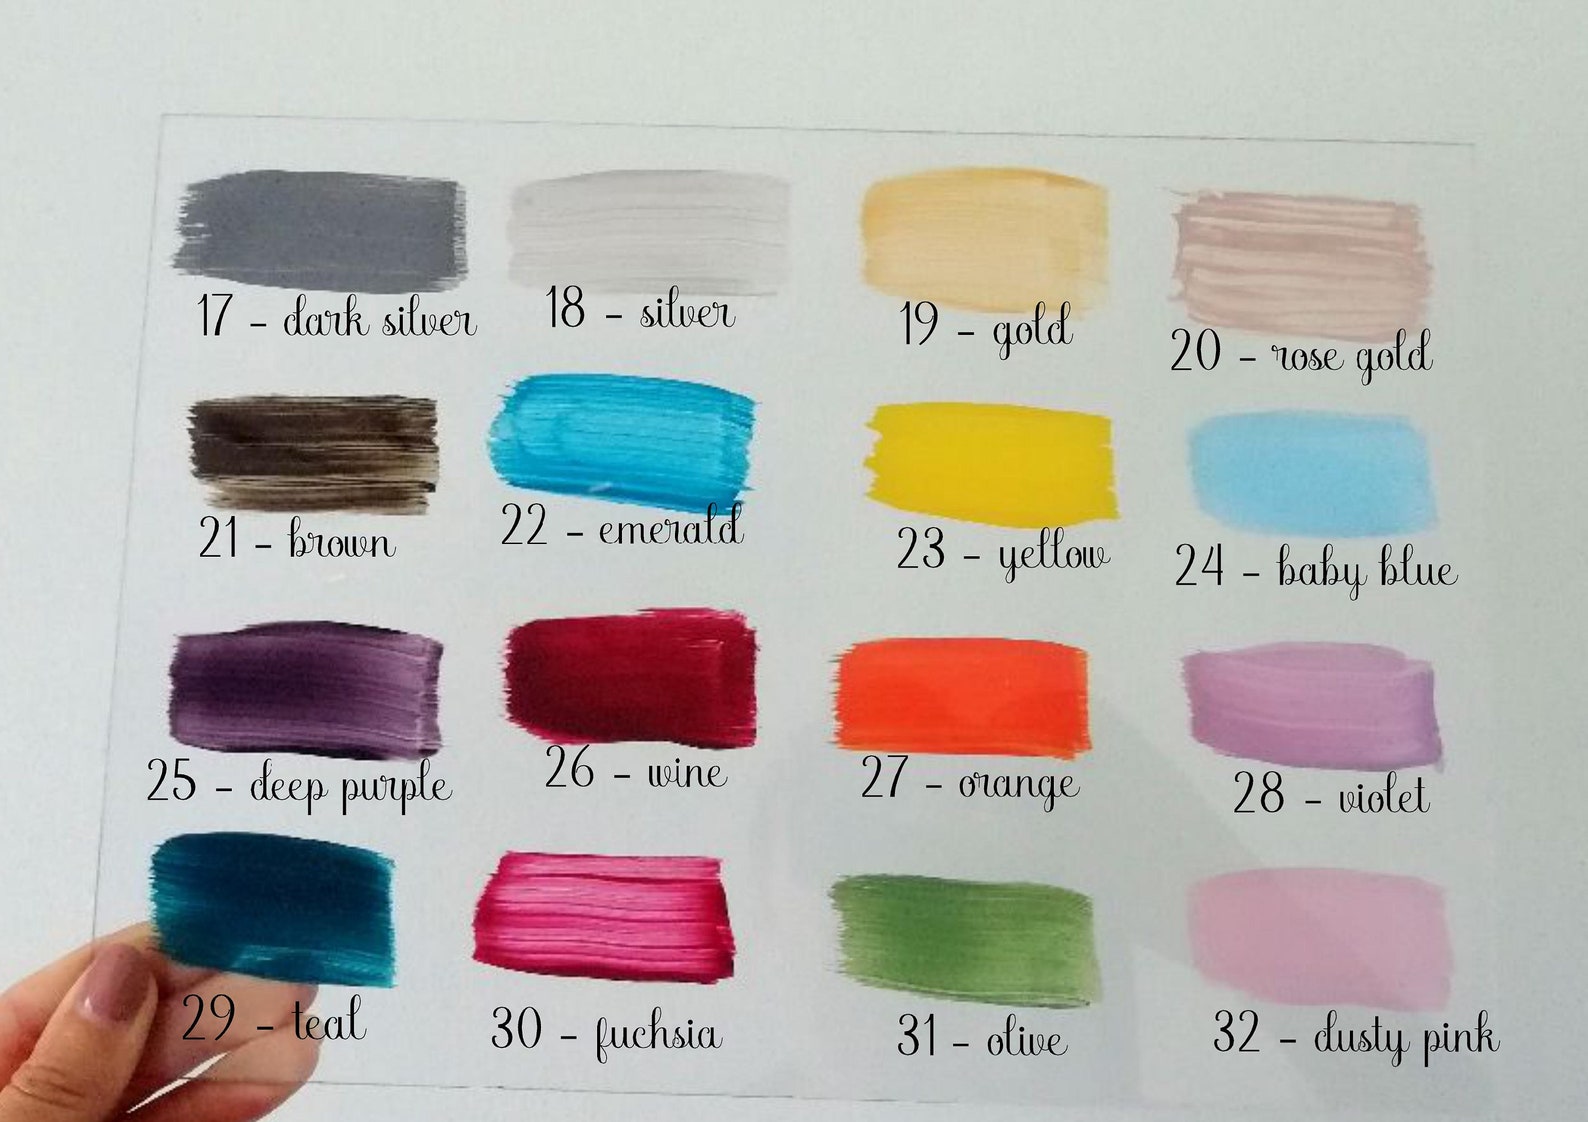 17 - dark silver
18 - silver
19 - gold
20 - rose gold
21 - brown
22 - emerald
23 - yellow
24 - baby blue
25 - deep purple
26 - wine
27 - orange
28 - violet
29 - teal
30 - fuchsia
31 - olive
32 - dusty pink